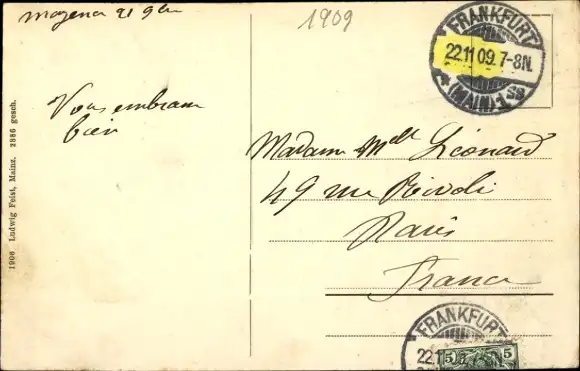 1909
FRANKFURT
22.11.09.7-8N.
(MAIN) 1
Vous embrasse
bien
Madame Mell Léonard
49 rue Rivoli
Paris
France
1906 Ludwig Feist, Mainz. 2886 gesch.
FRANKFURT
22.1
5 5